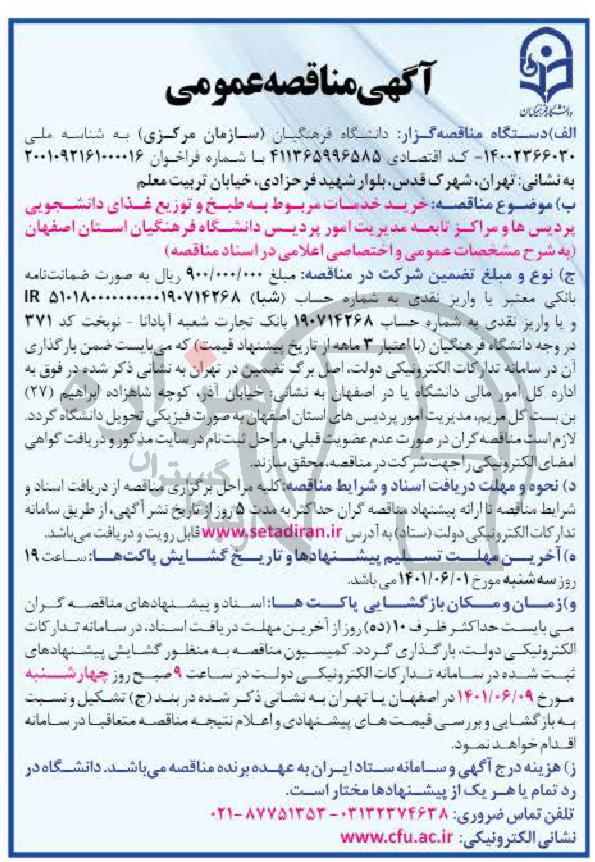 دانشگاه فرهنگیان
آگهی مناقصه عمومی
الف) دستگاه مناقصه‌گزار: دانشگاه فرهنگیان (سازمان مرکزی) به شناسه ملی
۱۴۰۰۲۳۶۶۰۳۰- کد اقتصادی ۴۱۱۳۶۵۹۹۶۵۸۵ با شماره فراخوان ۲۰۰۱۰۹۲۱۶۱۰۰۰۰۱۶
به نشانی: تهران، شهرک قدس، بلوار شهید فرحزادی، خیابان تربیت معلم
ب) موضوع مناقصه: خرید خدمات مربوط به طبخ و توزیع غذای دانشجویی
پردیس ها و مراکز تابعه مدیریت امور پردیس دانشگاه فرهنگیان استان اصفهان
(به شرح مشخصات عمومی و اختصاصی اعلامی در اسناد مناقصه)
ج) نوع و مبلغ تضمین شرکت در مناقصه: مبلغ ۹۰۰/۰۰۰/۰۰۰ ریال به صورت ضمانت‌نامه
بانکی معتبر یا واریز نقدی به شماره حساب (شبا) IR ۵۱۰۱۸۰۰۰۰۰۰۰۰۰۰۱۹۰۷۱۴۲۶۸
و یا واریز نقدی به شماره حساب ۱۹۰۷۱۴۲۶۸ بانک تجارت شعبه آپادانا - نوبخت کد ۳۷۱
در وجه دانشگاه فرهنگیان (با اعتبار ۳ ماهه از تاریخ پیشنهاد قیمت) که می‌بایست ضمن بارگذاری
آن در سامانه تدارکات الکترونیکی دولت، اصل برگ تضمین در تهران به نشانی ذکر شده در فوق به
اداره کل امور مالی دانشگاه یا در اصفهان به نشانی: خیابان آذر، کوچه شاهزاده ابراهیم (۲۷)
بن بست گل مریم، مدیریت امور پردیس های استان اصفهان به صورت فیزیکی تحویل دانشگاه گردد.
لازم است مناقصه‌گران در صورت عدم عضویت قبلی، مراحل ثبت‌نام در سایت مذکور و دریافت گواهی
امضای الکترونیکی را جهت شرکت در مناقصه، محقق سازند.
د) نحوه و مهلت دریافت اسناد و شرایط مناقصه: کلیه مراحل برگزاری مناقصه از دریافت اسناد و
شرایط مناقصه تا ارائه پیشنهاد مناقصه گران حداکثر به مدت ۵ روز از تاریخ نشر آگهی، از طریق سامانه
تدارکات الکترونیکی دولت (ستاد) به آدرس www.setadiran.ir قابل رویت و دریافت می‌باشد.
ه) آخرین مهلت تسلیم پیشنهادها و تاریخ گشایش پاکت‌ها: ساعت ۱۹
روز سه شنبه مورخ ۱۴۰۱/۰۶/۰۱ می‌باشد.
و) زمان و مکان بازگشایی پاکت ها: اسناد و پیشنهادهای مناقصه گران
می بایست حداکثر ظرف ۱۰ (ده) روز از آخرین مهلت دریافت اسناد، در سامانه تدارکات
الکترونیکی دولت، بارگذاری گردد. کمیسیون مناقصه به منظور گشایش پیشنهادهای
ثبت شده در سامانه تدارکات الکترونیکی دولت در ساعت ۹ صبح روز چهارشنبه
مورخ ۱۴۰۱/۰۶/۰۹ در اصفهان یا تهران به نشانی ذکر شده در بند (ج) تشکیل و نسبت
به بازگشایی و بررسی قیمت های پیشنهادی و اعلام نتیجه مناقصه متعاقبا در سامانه
اقدام خواهد نمود.
ز) هزینه درج آگهی و سامانه ستاد ایران به عهده برنده مناقصه می‌باشد. دانشگاه در
رد تمام یا هر یک از پیشنهادها مختار است.
تلفن تماس ضروری: ۰۳۱۳۲۳۷۴۶۳۸-۸۷۷۵۱۳۵۳-۰۲۱
نشانی الکترونیکی: www.cfu.ac.ir